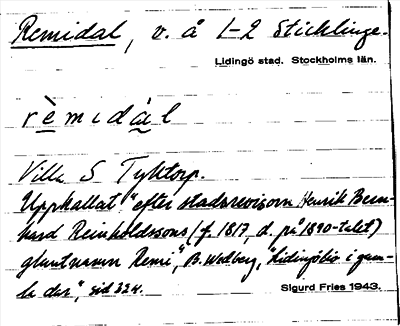 Remidal, v. å 1-2 Sticklinge.
Lidingö stad. Stockholms län.
rèmidál
Villa S Tyktorp.
Uppkallat "efter stadsrevisorn Henrik Bern-
hard Reinholdssons (f. 1817, d. på 1890-talet)
gluntnamn Remi", B. Wedberg, "Lidingöbor i gam-
la dar", sid 224.
Sigurd Fries 1943.